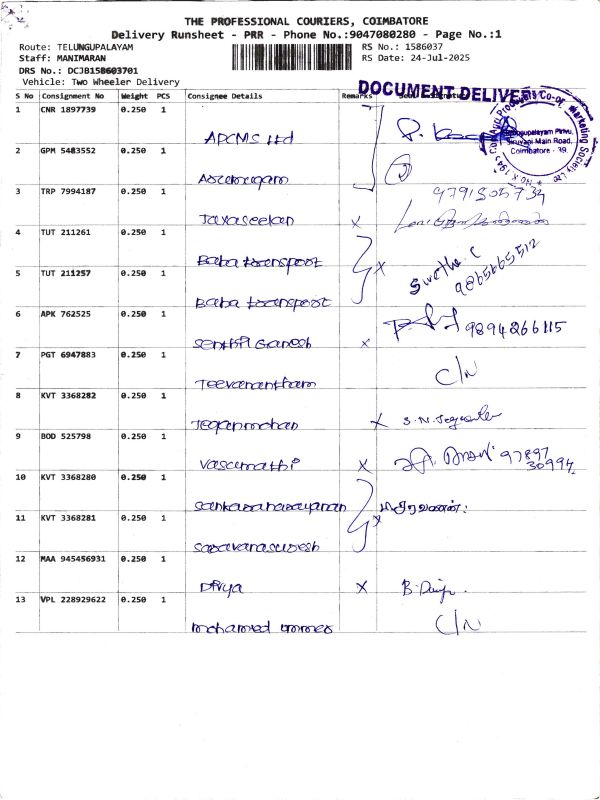 THE PROFESSIONAL COURIERS, COIMBATORE
Delivery Runsheet - PRR - Phone No.:9047080280 - Page No.:1
Route: TELUNGUPALAYAM RS No.: 1586037
Staff: MANIMARAN RS Date: 24-Jul-2025
DRS No.: DCJB158603701
Vehicle: Two Wheeler Delivery
DOCUMENT DELIVER
S No Consignment No Weight PCS Consignee Details Remarks
1 CNR 1897739 0.250 1
APCMS Ltd
Telungupalayam Pirivu,
Siruvani Main Road,
Coimbatore - 39.
2 GPM 5483552 0.250 1
Arumugam
3 TRP 7994187 0.250 1 9791305734
Jayaseelan x
4 TUT 211261 0.250 1
Baba transport x Swetha. C
9865665512
5 TUT 211257 0.250 1
Baba transport
6 APK 762525 0.250 1
Senthil Ganesh x 9894266115
7 PGT 6947883 0.250 1
Jeevanantham C/N
8 KVT 3368282 0.250 1
Jeganmohan x
9 BOD 525798 0.250 1
Vasumathi x 97897
30994
10 KVT 3368280 0.250 1
Sankaranarayanan x
11 KVT 3368281 0.250 1
Saravanasuresh
12 MAA 945456931 0.250 1
Divya x
13 VPL 228929622 0.250 1
mohamed ummer C/N